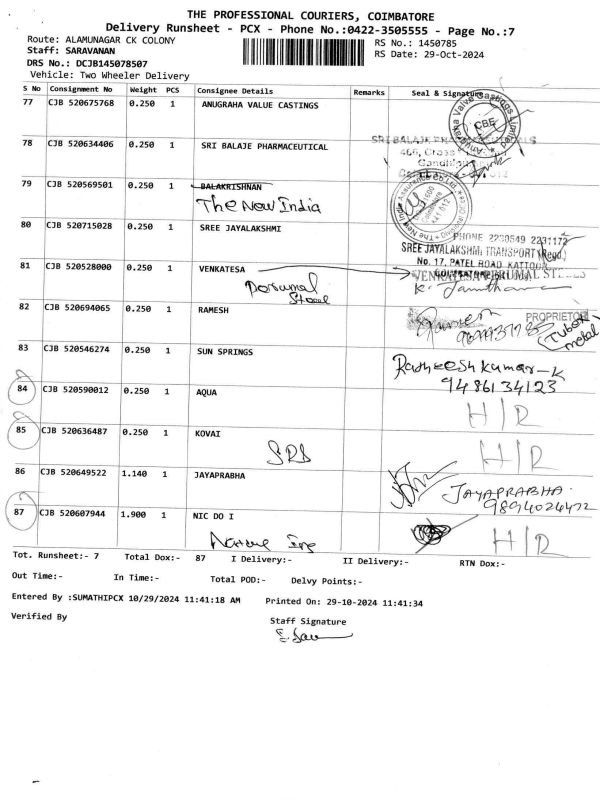 THE PROFESSIONAL COURIERS, COIMBATORE
Delivery Runsheet - PCX - Phone No.:0422-3505555 - Page No.:7
Route: ALAMUNAGAR CK COLONY
RS No.: 1450785
Staff: SARAVANAN
RS Date: 29-Oct-2024
DRS No.: DCJB145078507
Vehicle: Two Wheeler Delivery
S No Consignment No Weight PCS Consignee Details Remarks Seal & Signature
77 CJB 520675768 0.250 1 ANUGRAHA VALUE CASTINGS
Anugraha Valve Castings Limited CBE
78 CJB 520634406 0.250 1 SRI BALAJE PHARMACEUTICAL
SRI BALAJE
466, Cross
79 CJB 520569501 0.250 1 BALAKRISHNAN
The New India
80 CJB 520715028 0.250 1 SREE JAYALAKSHMI
PHONE 2230549 2231172
SREE JAYALAKSHMI TRANSPORT (Regd.)
No. 17, PATEL ROAD, KATTOOR
81 CJB 520528000 0.250 1 VENKATESA
VENKATESA PERUMAL STEELS
Perumal
Steel
82 CJB 520694065 0.250 1 RAMESH
PROPRIETOR
Tubex
metal
83 CJB 520546274 0.250 1 SUN SPRINGS
Ratheesh kumar-K
9486134123
84 CJB 520590012 0.250 1 AQUA
H/R
85 CJB 520636487 0.250 1 KOVAI
SRS
H/R
86 CJB 520649522 1.140 1 JAYAPRABHA
JAYAPRABHA
9894024472
87 CJB 520607944 1.900 1 NIC DO I
H/R
Tot. Runsheet:- 7 Total Dox:- 87 I Delivery:- II Delivery:- RTN Dox:-
Out Time:- In Time:- Total POD:- Delvy Points:-
Entered By :SUMATHIPCX 10/29/2024 11:41:18 AM Printed On: 29-10-2024 11:41:34
Verified By
Staff Signature